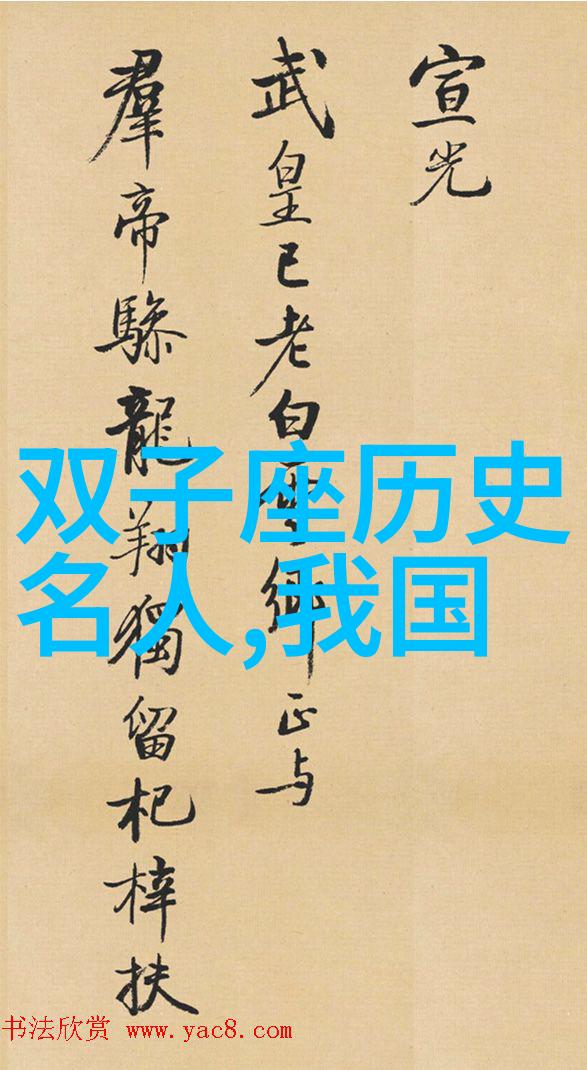 宣光
武皇已老白雲鄉正与
羣帝驂龍翔獨留杞梓扶
双子座历史
名人,我国
书法欣赏 www.yac8.com